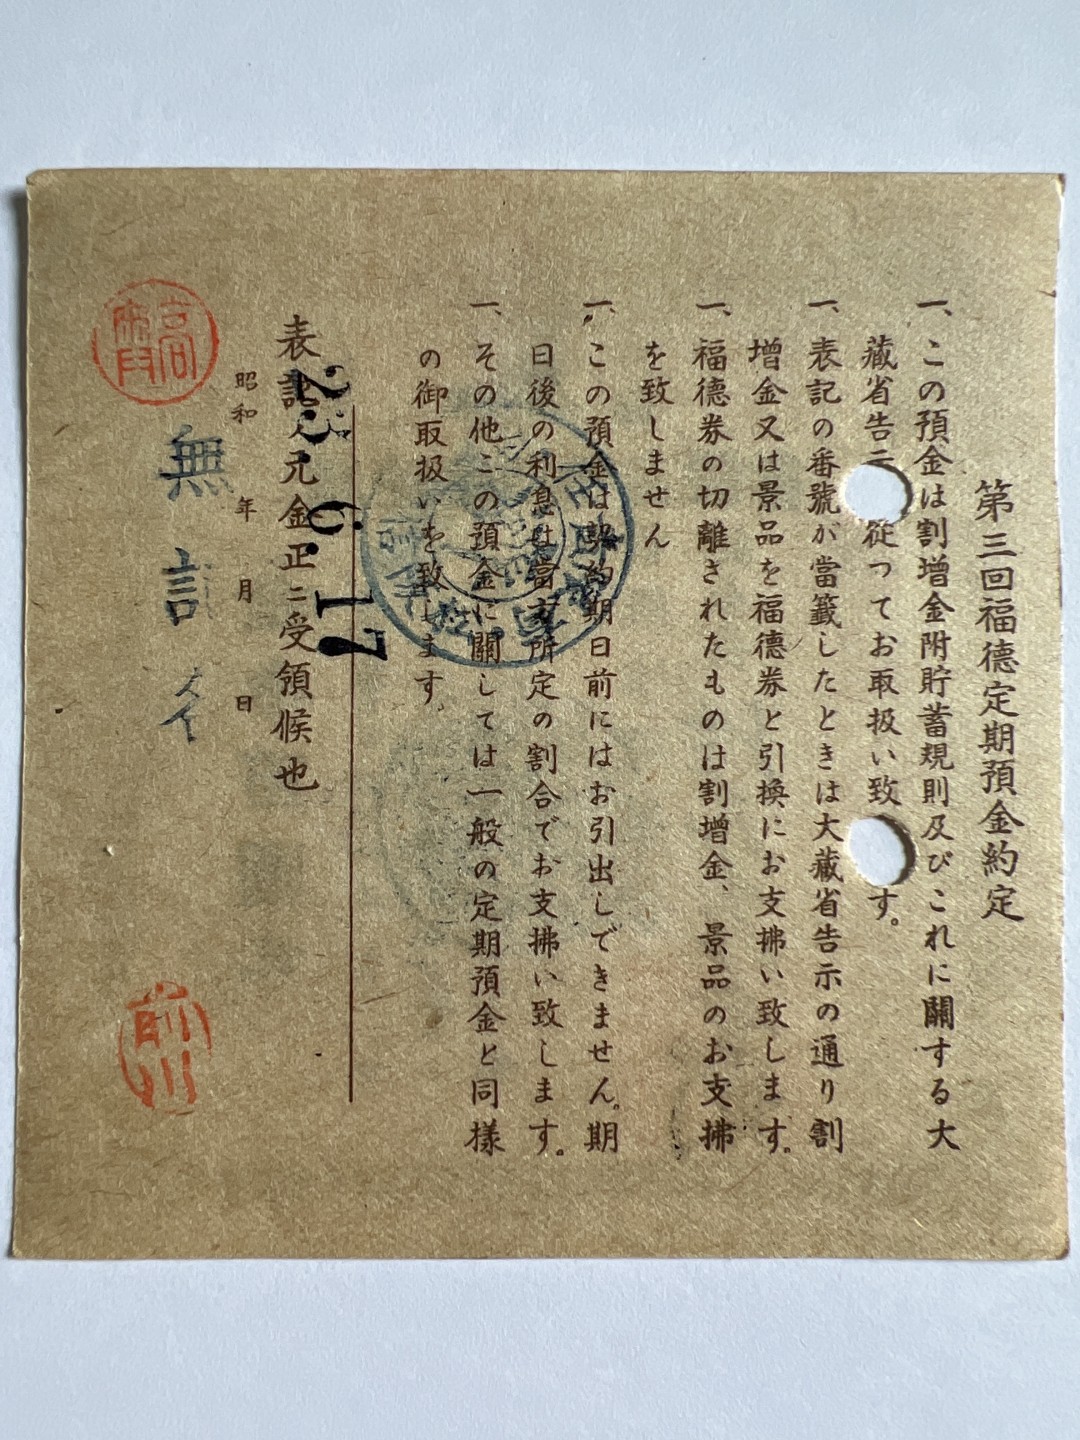 第三回福德定期預金約定
一、この預金は割增金附貯蓄規則及びこれに關する大
藏省告示 從つてお取扱い致 す。
一、表記の番號が當籤したときは大藏省告示の通り割
增金又は景品を福德券と引換にお支拂い致します。
一、福德券の切離されたものは割增金、景品のお支拂
を致しません
一、この預金は契約期日前にはお引出しできません。期
日後の利息は當 所定の割合でお支拂い致します。
一、その他この預金に關しては一般の定期預金と同樣
の御取扱いを致します。
表記ノ元金正ニ受領候也
23.6.17
昭和 年 月 日
無記名
高
前川